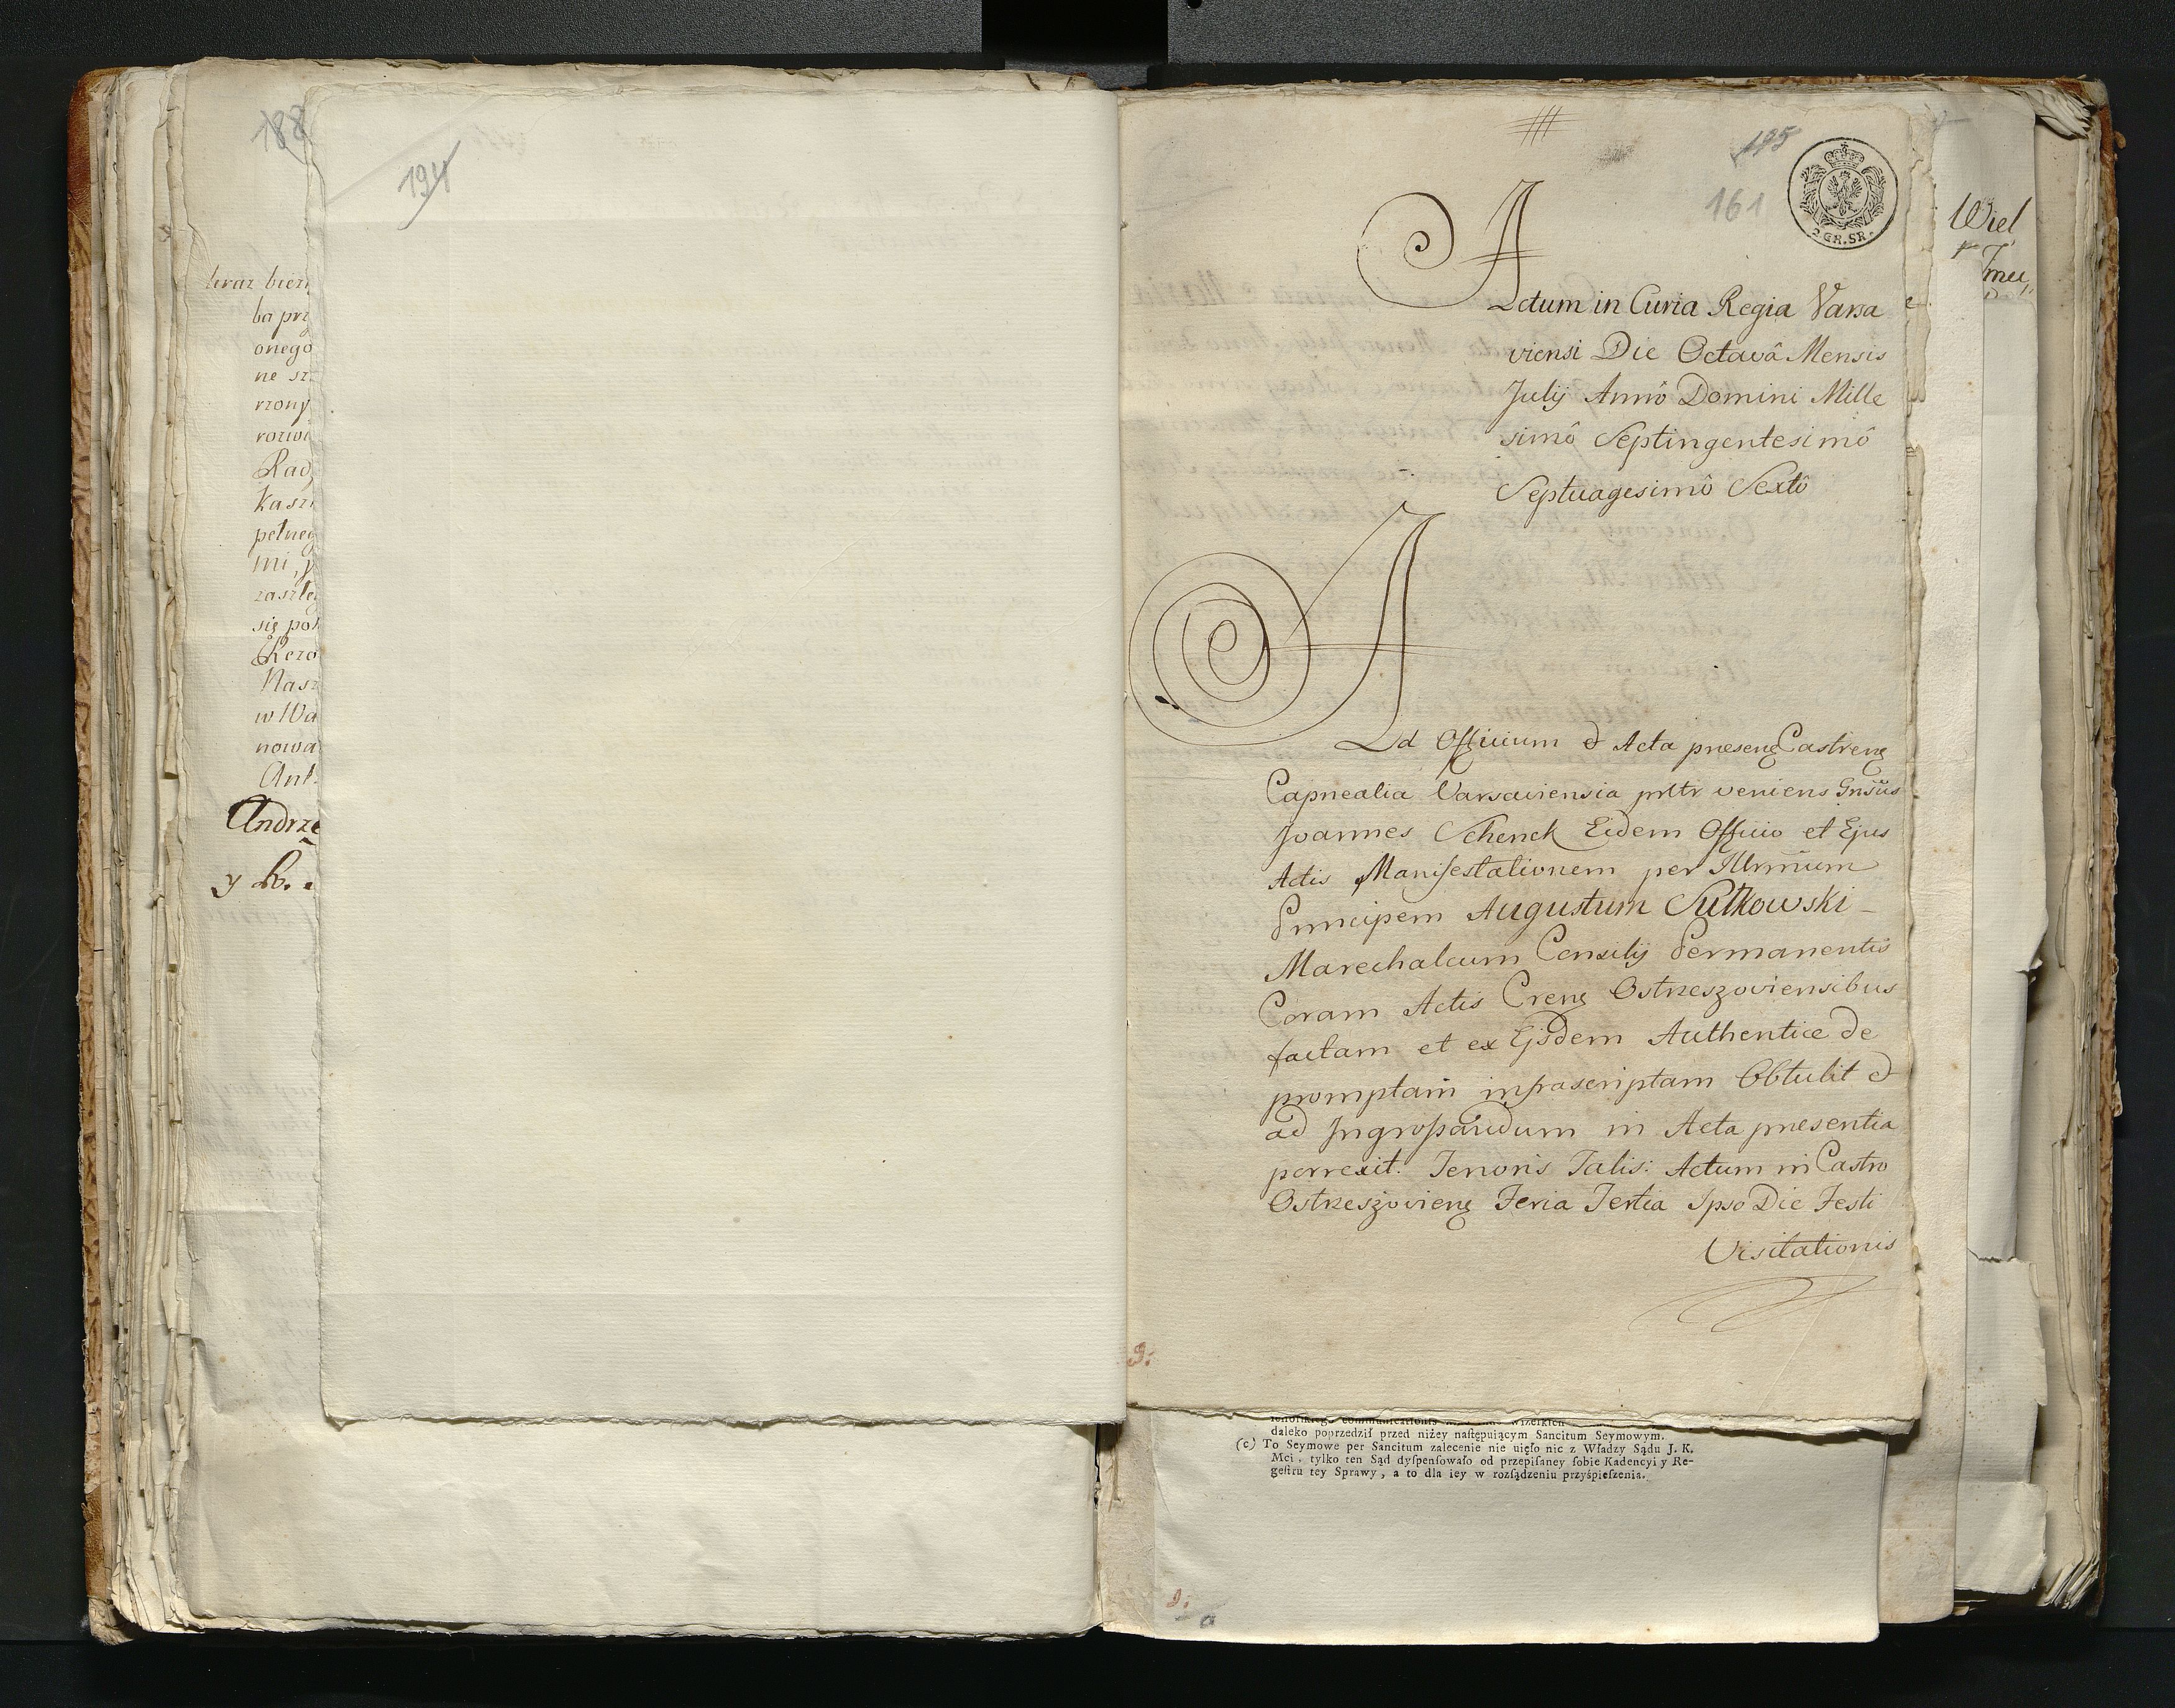 188
194
onego
ne
rzony
Rad
pełneg
mi,
się
w Wa
nowa
Andrze
195
161
2. GR. SR.
Actum in Curia Regia Varsa
viensi Die Octavâ Mensis
Julij Annô Domini Mille
simô Septingentesimô
Septuagesimô Sextô
Ad Officium & Acta præsenę Castrenę
Capnealia Varsaviensia prltr veniens Gnsûs
Joannes Schenck Eidem Officio et Ejus
Actis Manifestationem per Illrmum
Principem Augustum Sułkowski
Marechalcum Consilij Permanentis
Coram Actis Crenę Ostrzeszoviensibus
factam et ex Ejsdem Authentice de
promptam infrascriptam Obtulit &
ad Ingrossandum in Acta præsentia
porrexit. Tenoris Talis: Actum in Castro
Ostrzeszovienę Feria Tertia Ipso Die Festi
Visitationis
9:
Wiel
daleko poprzedził przed niżey naſtępuiącym Sancitum Seymowym.
(c) To Seymowe per Sancitum zalecenie nie uięło nic z Władzy Sądu J. K.
Mci, tylko ten Sąd dyſpenſowało od przepiſaney ſobie Kadencyi y Re-
geſtru tey Sprawy, a to dla iey w rozſądzeniu przyśpieſzenia.
9:
a